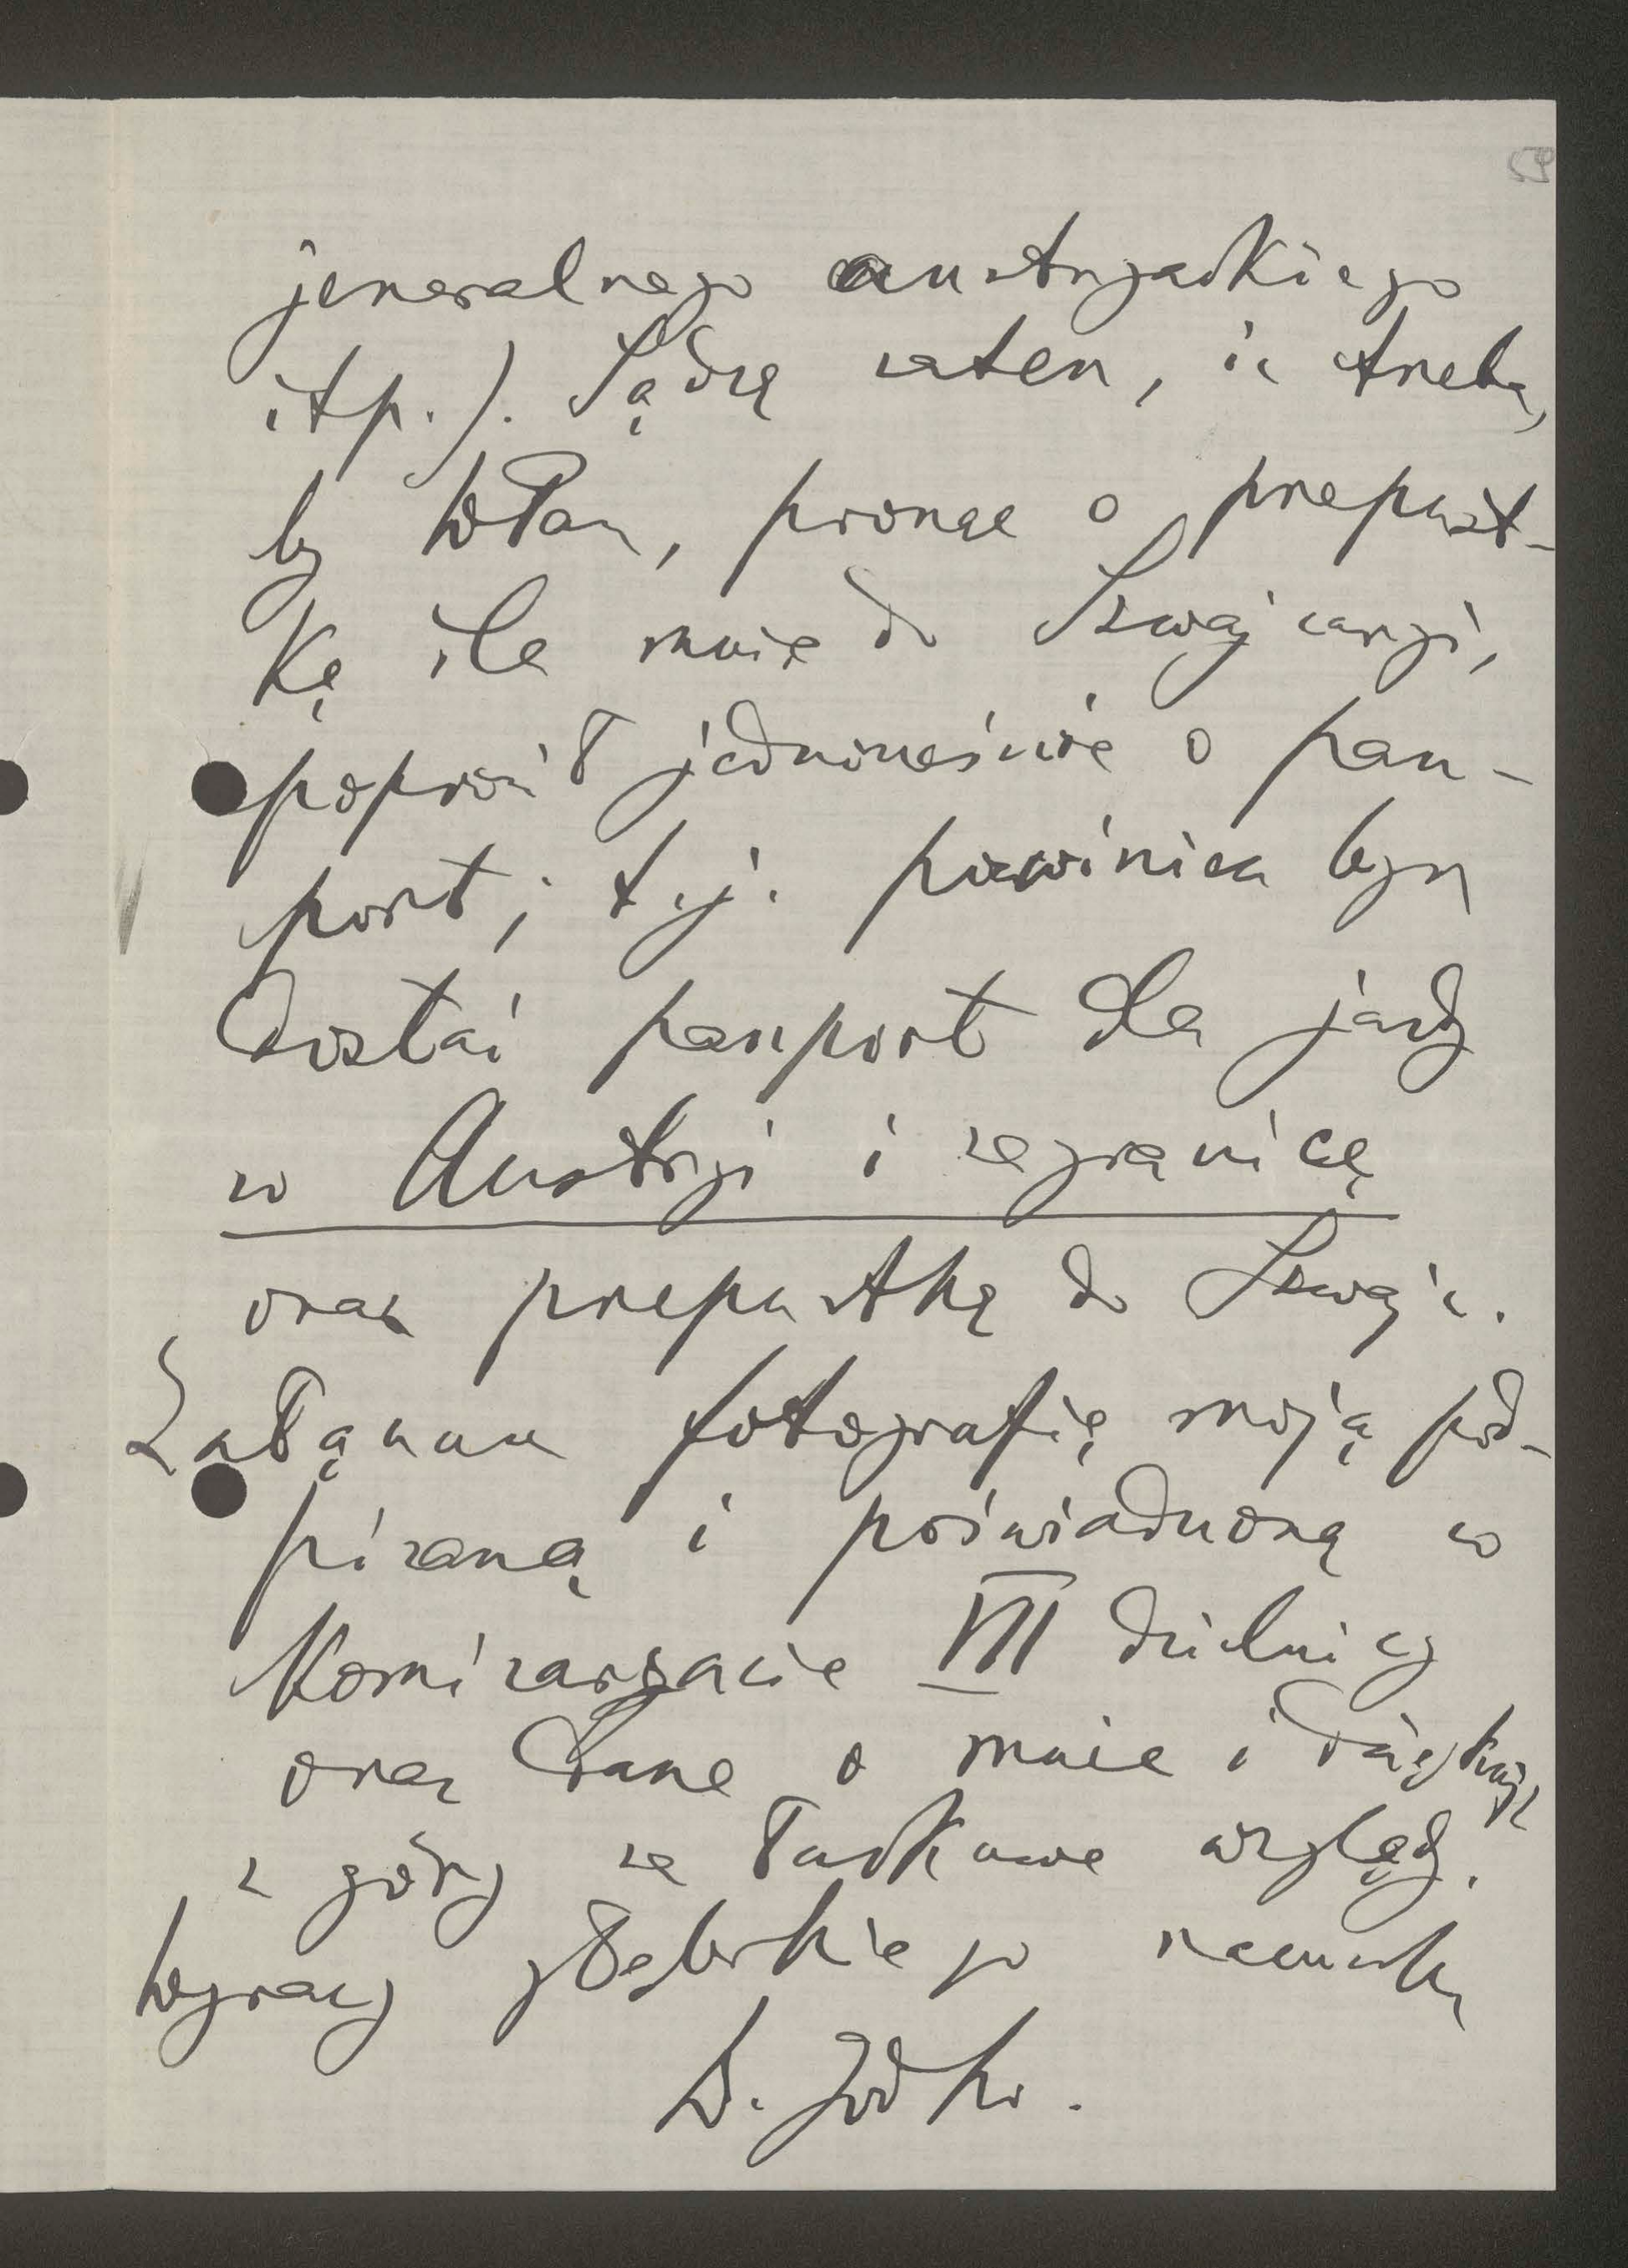 59
jeneralnego austryackiego
itp.). Sądzę zatem, iż trzeba,
by Pan, prosząc o przepust-
kę dla mnie do Szwajcaryi,
poprosił jednocześnie o pasz-
port; t.j. powinien bym
dostać paszport dla jazdy
w Austryi i zagranicę
oraz przepustkę do Szwajc.
Załączam fotografię moją pod-
pisaną i poświadczoną w
Komisaryacie VII dzielnicy
oraz dane o mnie i dziękuję
z góry za łaskawe względy.
Wyrazy głębokiego szacunku
W. Jodko.